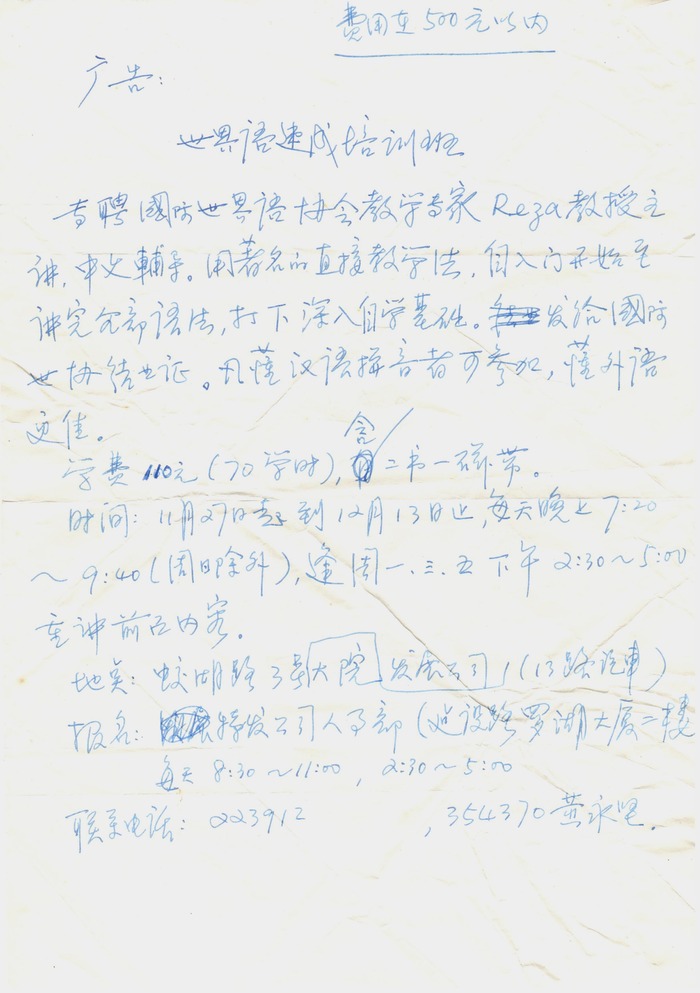 费用在500元以内
广告:
世界语速成培训班
专聘國际世界语协会教学专家Reza教授主
讲,中文輔导。用著名的直接教学法,自入门开始至
讲完全部语法,打下深入自学基础。发给國际
世协结业证。凡懂汉语拼音者可参加,懂外语
更佳。
学费110元(70学时),含二书一磁带。
时间:11月27日起到12月13日止,每天晚上7:20
~9:40(周日除外),逢周一.三.五下午2:30~5:00
重讲前面内容。
地点:蛟湖路3号大院 发展公司(13路汽車)
报名:特发公司人事部(建设路罗湖大厦二楼
每天8:30~11:00,2:30~5:00
联系电话:223912 ,354370黄永坚.